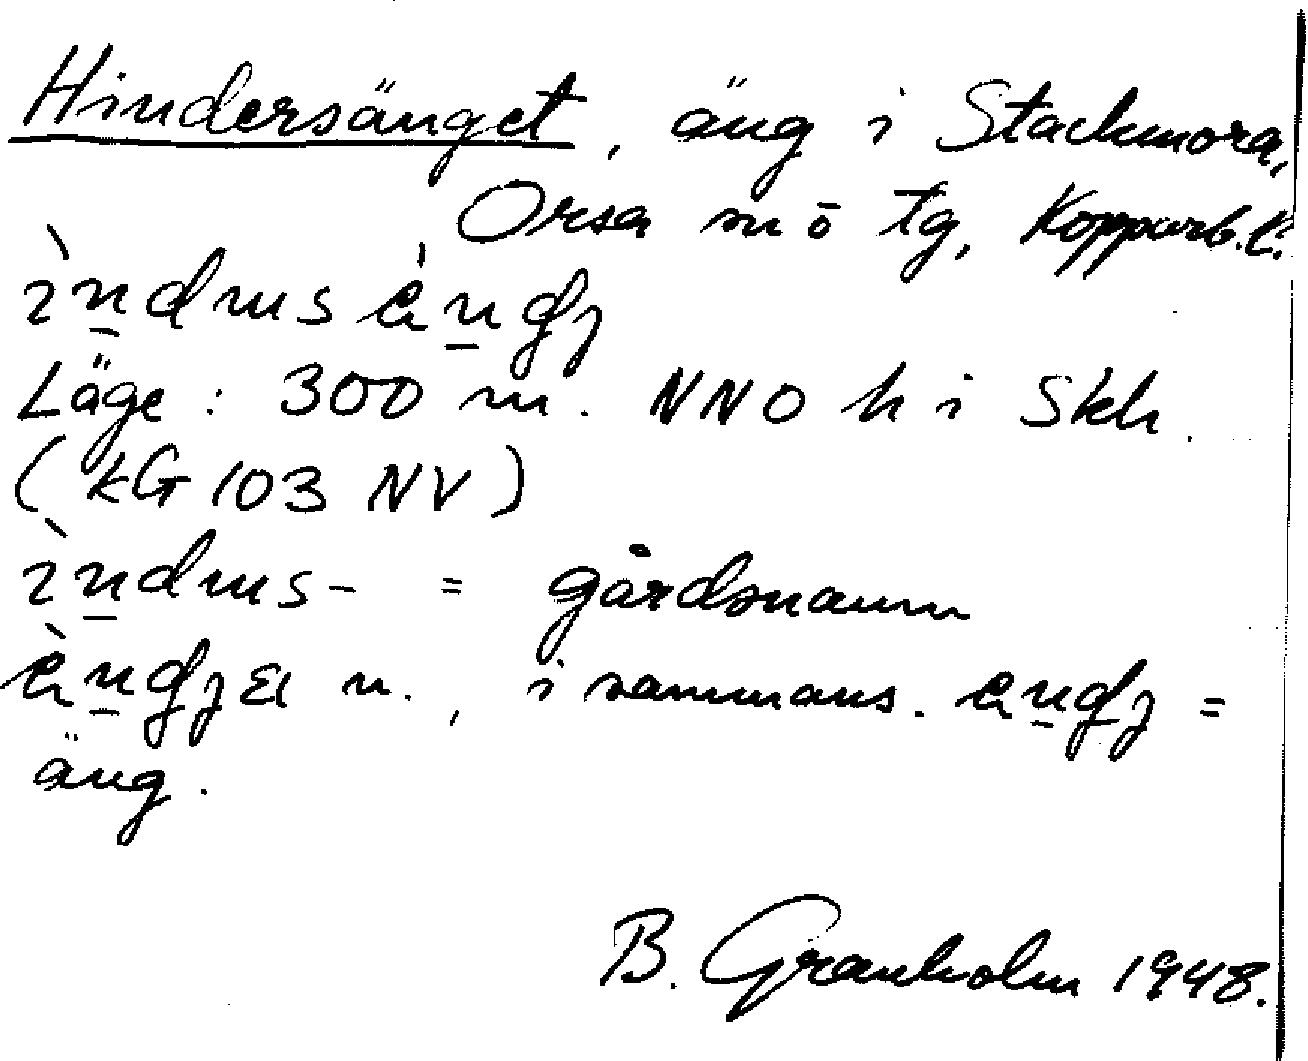 Hindersänget, äng i Stackmora,
Orsa sn ö tg, Kopparb.l.
ìn̲dɯs èn̲gȷ
Läge: 300 m. NNO h i Skh.
(kG 103 NV)
ìn̲dɯs- = gårdsnamn
èn̲gȷɛ n., i sammans. en̲gȷ =
äng.
B. Granholm 1948.